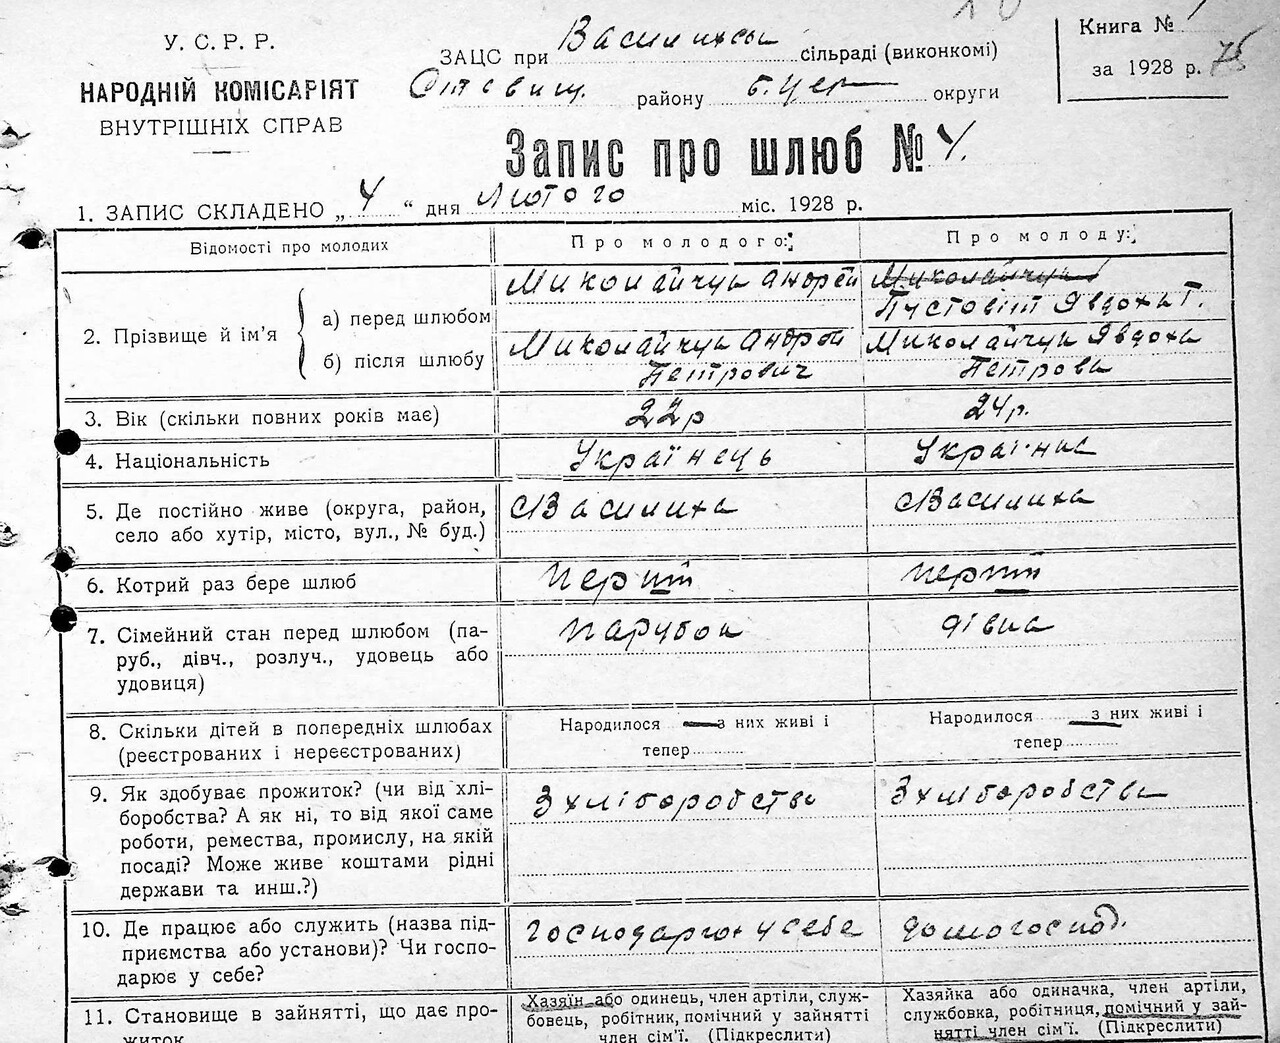 У. С. Р. Р.
НАРОДНІЙ КОМІСАРІЯТ
ВНУТРІШНІХ СПРАВ
ЗАЦС при сільраді (виконкомі)
району округи
Книга №
за 1928 р. 75
Запис про шлюб № 4.
1. ЗАПИС СКЛАДЕНО „ 4 “ дня Лютого міс. 1928 р.
Відомості про молодих
Про молодого:
Про молоду:
2. Прізвище й ім’я
а) перед шлюбом
Миколайчук Андрей
Миколайчук
Пустовіт Явдоха П.
б) після шлюбу
Миколайчук Андрей
Петрович
Миколайчук Явдоха
Петрова
3. Вік (скільки повних років має)
22 р
24 р.
4. Національність
Українець
Українка
5. Де постійно живе (округа, район,
село або хутір, місто, вул., № буд.)
с Василиха
с Василиха
6. Котрий раз бере шлюб
перший
перший
7. Сімейний стан перед шлюбом (па-
руб., дівч., розлуч., удовець або
удовиця)
парубок
дівка
8. Скільки дітей в попередніх шлюбах
(реєстрованих і нереєстрованих)
Народилося — з них живі і
тепер
Народилося — з них живі і
тепер
9. Як здобуває прожиток? (чи від хлі-
боробства? А як ні, то від якої саме
роботи, ремества, промислу, на якій
посаді? Може живе коштами рідні
держави та инш.?)
З хліборобства
З хліборобства
10. Де працює або служить (назва під-
приємства або установи)? Чи госпо-
дарює у себе?
у себе
домогоспод.
11. Становище в зайнятті, що дає про-
житок
Хазяїн або одинець, член артілі, служ-
бовець, робітник, помічний у зайнятті
член сім’ї. (Підкреслити)
Хазяйка або одиначка, член артілі,
службовка, робітниця, помічний у зай-
нятті член сім’ї. (Підкреслити)